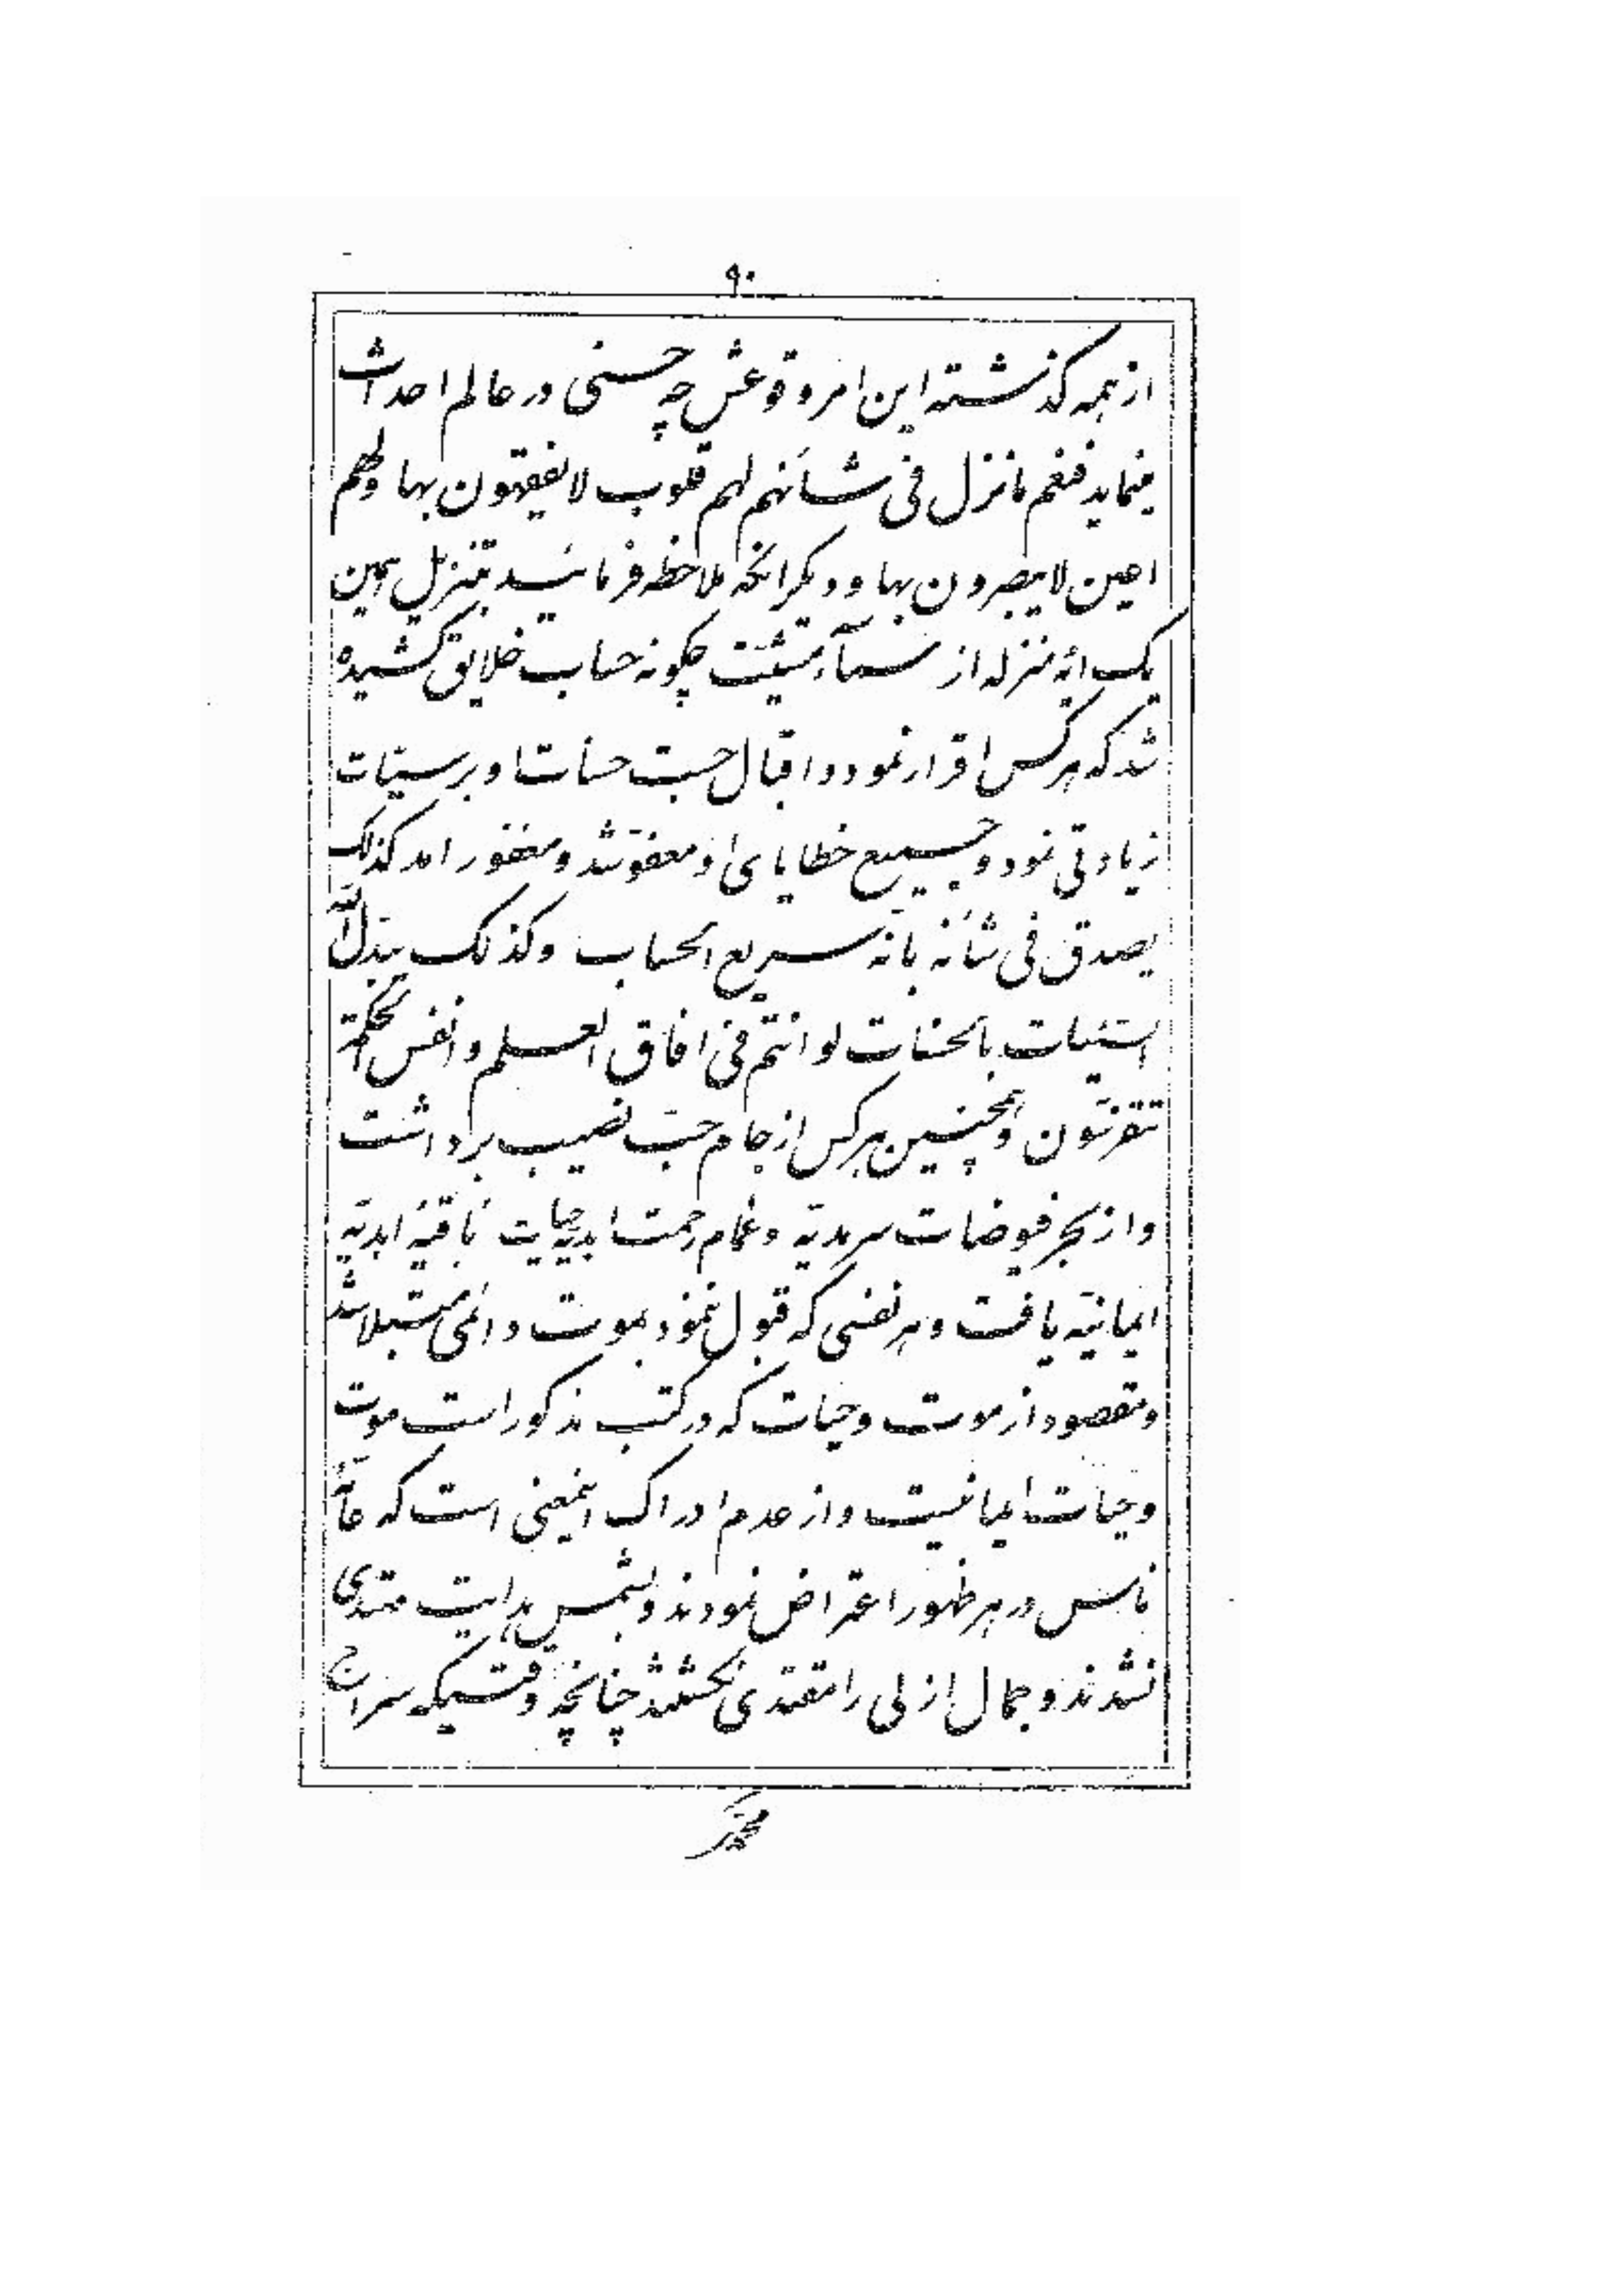 ۹۰
از همه گذشته این امر وقوعش چه حسنی در عالم احداث
مینماید فنعم ما نزل فی شأنهم لهم قلوب لا یفقهون بها ولهم
اعین لا یبصرون بها و دیگر آنکه ملاحظه فرمائید بتنزیل همین
یک ایه منزله از سمآء مشیّت چگونه حساب خلایق کشیده
شد که هر کس اقرار نمود و اقبال جست حسنات او بر سیّئات
زیادتی نمود و جمیع خطایای او معفوّ شد و مغفور امد کذلک
یصدق فی شأنه بانّه سریع الحساب و کذلک یبدّل اللّه
السّیئات بالحسنات لو انتم فی افاق العلم و انفس الحکمة
تتفرّسون و همچنین هر کس از جام حبّ نصیب برداشت
و از بحر فیوضات سرمدیّه و غمام رحمت ابدیّه حیات باقیه ابدیّه
ایمانیّه یافت و هر نفسی که قبول ننمود بموت دائمی مبتلا شد
و مقصود از موت و حیات که در کتب مذکور است موت
و حیات ایمانیست و از عدم ادراک اینمعنی است که عامّهٔ
ناس در هر ظهور اعتراض نمودند و بشمس هدایت مهتدی
نشدند و جمال ازلی را مقتدی نگشتند چنانچه وقتیکه سراج
محمّدی